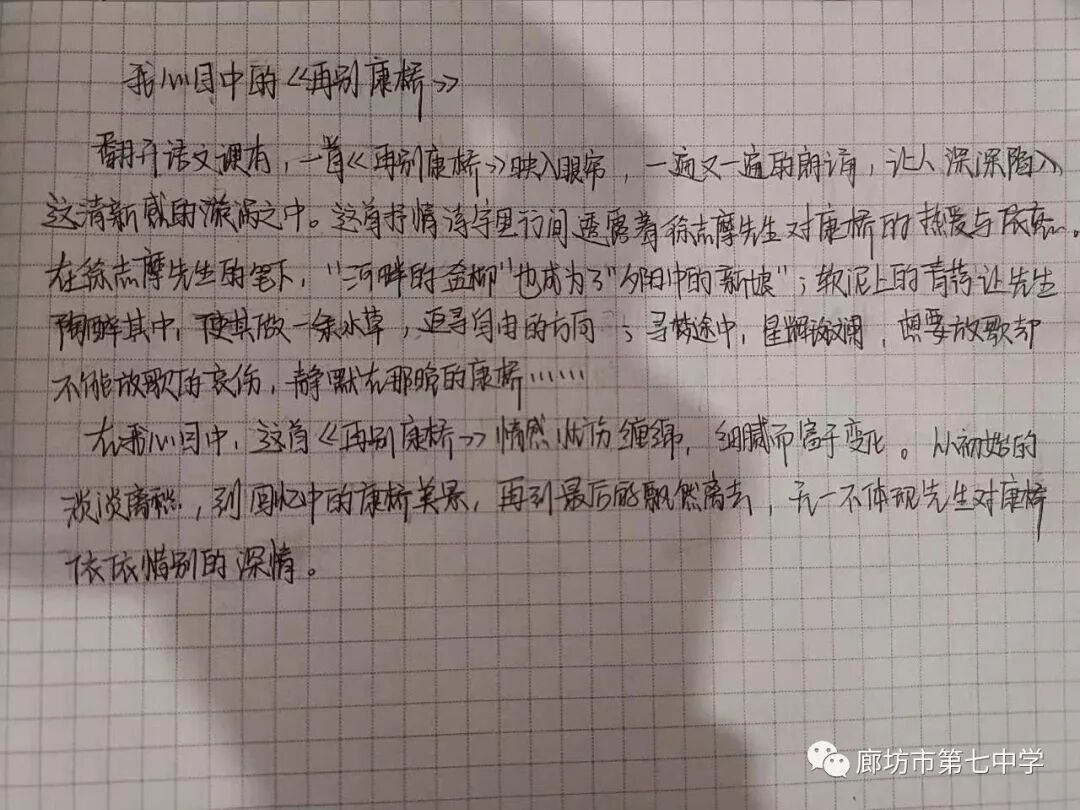 我心目中的《再别康桥》
翻开语文课本，一首《再别康桥》映入眼帘，一遍又一遍的朗诵，让人深深陷入
这清新感的漩涡之中。这首抒情诗字里行间透露着徐志摩先生对康桥的热爱与依恋。
在徐志摩先生的笔下，"河畔的金柳"也成为了"夕阳中的新娘"；软泥上的青荇让先生
陶醉其中，使其做一条水草，追寻自由的方向；寻梦途中，星辉斑斓，想要放歌却
不能放歌的哀伤，静默在那晚的康桥……
在我心目中，这首《再别康桥》情感忧伤缠绵，细腻而富于变化。从初始的
淡淡离愁，到回忆中的康桥美景，再到最后的飘然离去，无一不体现先生对康桥
依依惜别的深情。
廊坊市第七中学